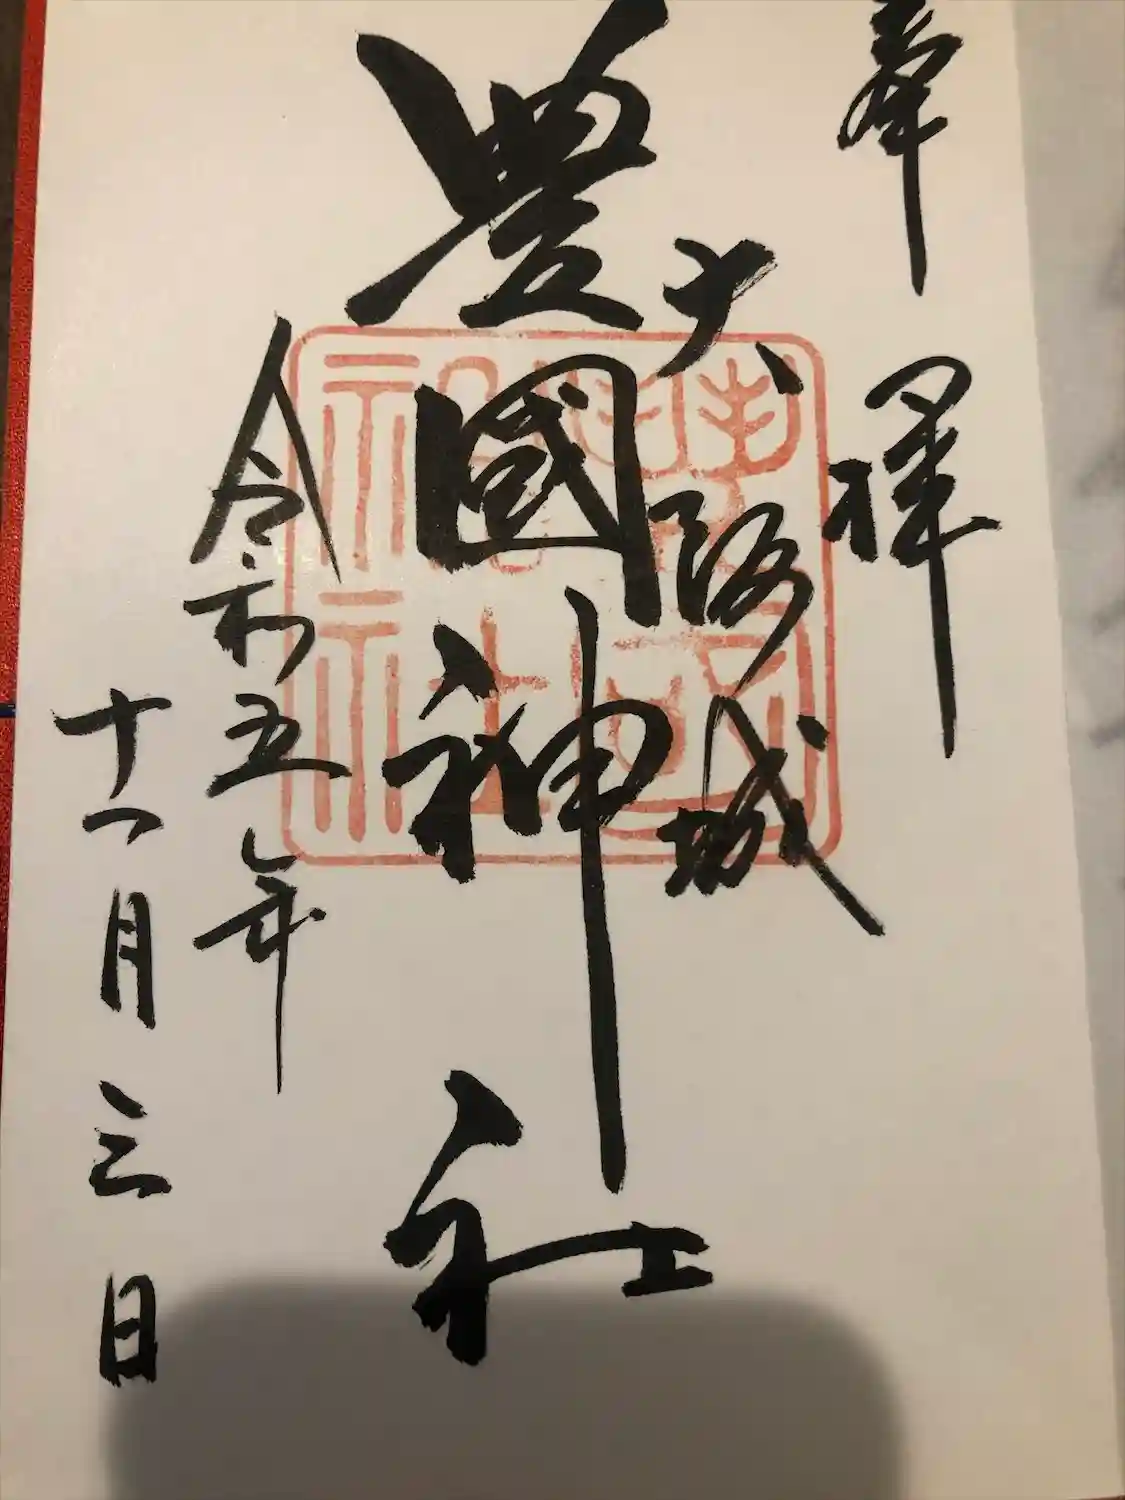 奉拝
大阪城
豊國神社
令和五年
十一月三日
豊国神社